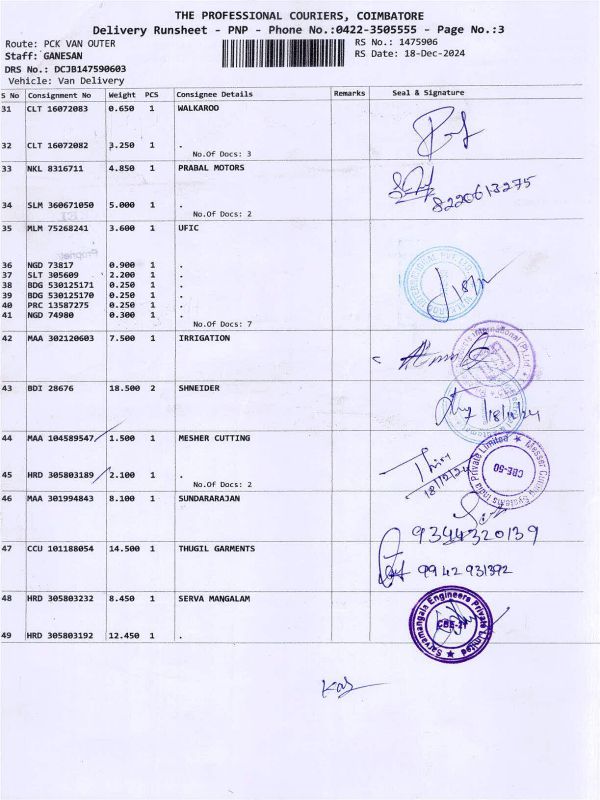 THE PROFESSIONAL COURIERS, COIMBATORE
Delivery Runsheet - PNP - Phone No.:0422-3505555 - Page No.:3
Route: PCK VAN OUTER RS No.: 1475906
Staff: GANESAN RS Date: 18-Dec-2024
DRS No.: DCJB147590603
Vehicle: Van Delivery
S No Consignment No Weight PCS Consignee Details Remarks Seal & Signature
31 CLT 16072083 0.650 1 WALKAROO
32 CLT 16072082 3.250 1 .
No.Of Docs: 3
33 NKL 8316711 4.850 1 PRABAL MOTORS
8220613275
34 SLM 360671050 5.000 1 .
No.Of Docs: 2
35 MLM 75268241 3.600 1 UFIC
36 NGD 73817 0.900 1 .
37 SLT 305609 2.200 1 .
38 BDG 530125171 0.250 1 .
39 BDG 530125170 0.250 1 .
40 PRC 13587275 0.250 1 .
41 NGD 74980 0.300 1 .
No.Of Docs: 7
42 MAA 302120603 7.500 1 IRRIGATION
43 BDI 28676 18.500 2 SHNEIDER
18/12/24
44 MAA 104589547 1.500 1 MESHER CUTTING
Messer Cutting Systems India Private Limited
CBE-50
18/12/24
45 HRD 305803189 2.100 1 .
No.Of Docs: 2
46 MAA 301994843 8.100 1 SUNDARARAJAN
9344320139
47 CCU 101188054 14.500 1 THUGIL GARMENTS
9942931392
48 HRD 305803232 8.450 1 SERVA MANGALAM
Sarvamangala Engineers Private Limited
49 HRD 305803192 12.450 1 .